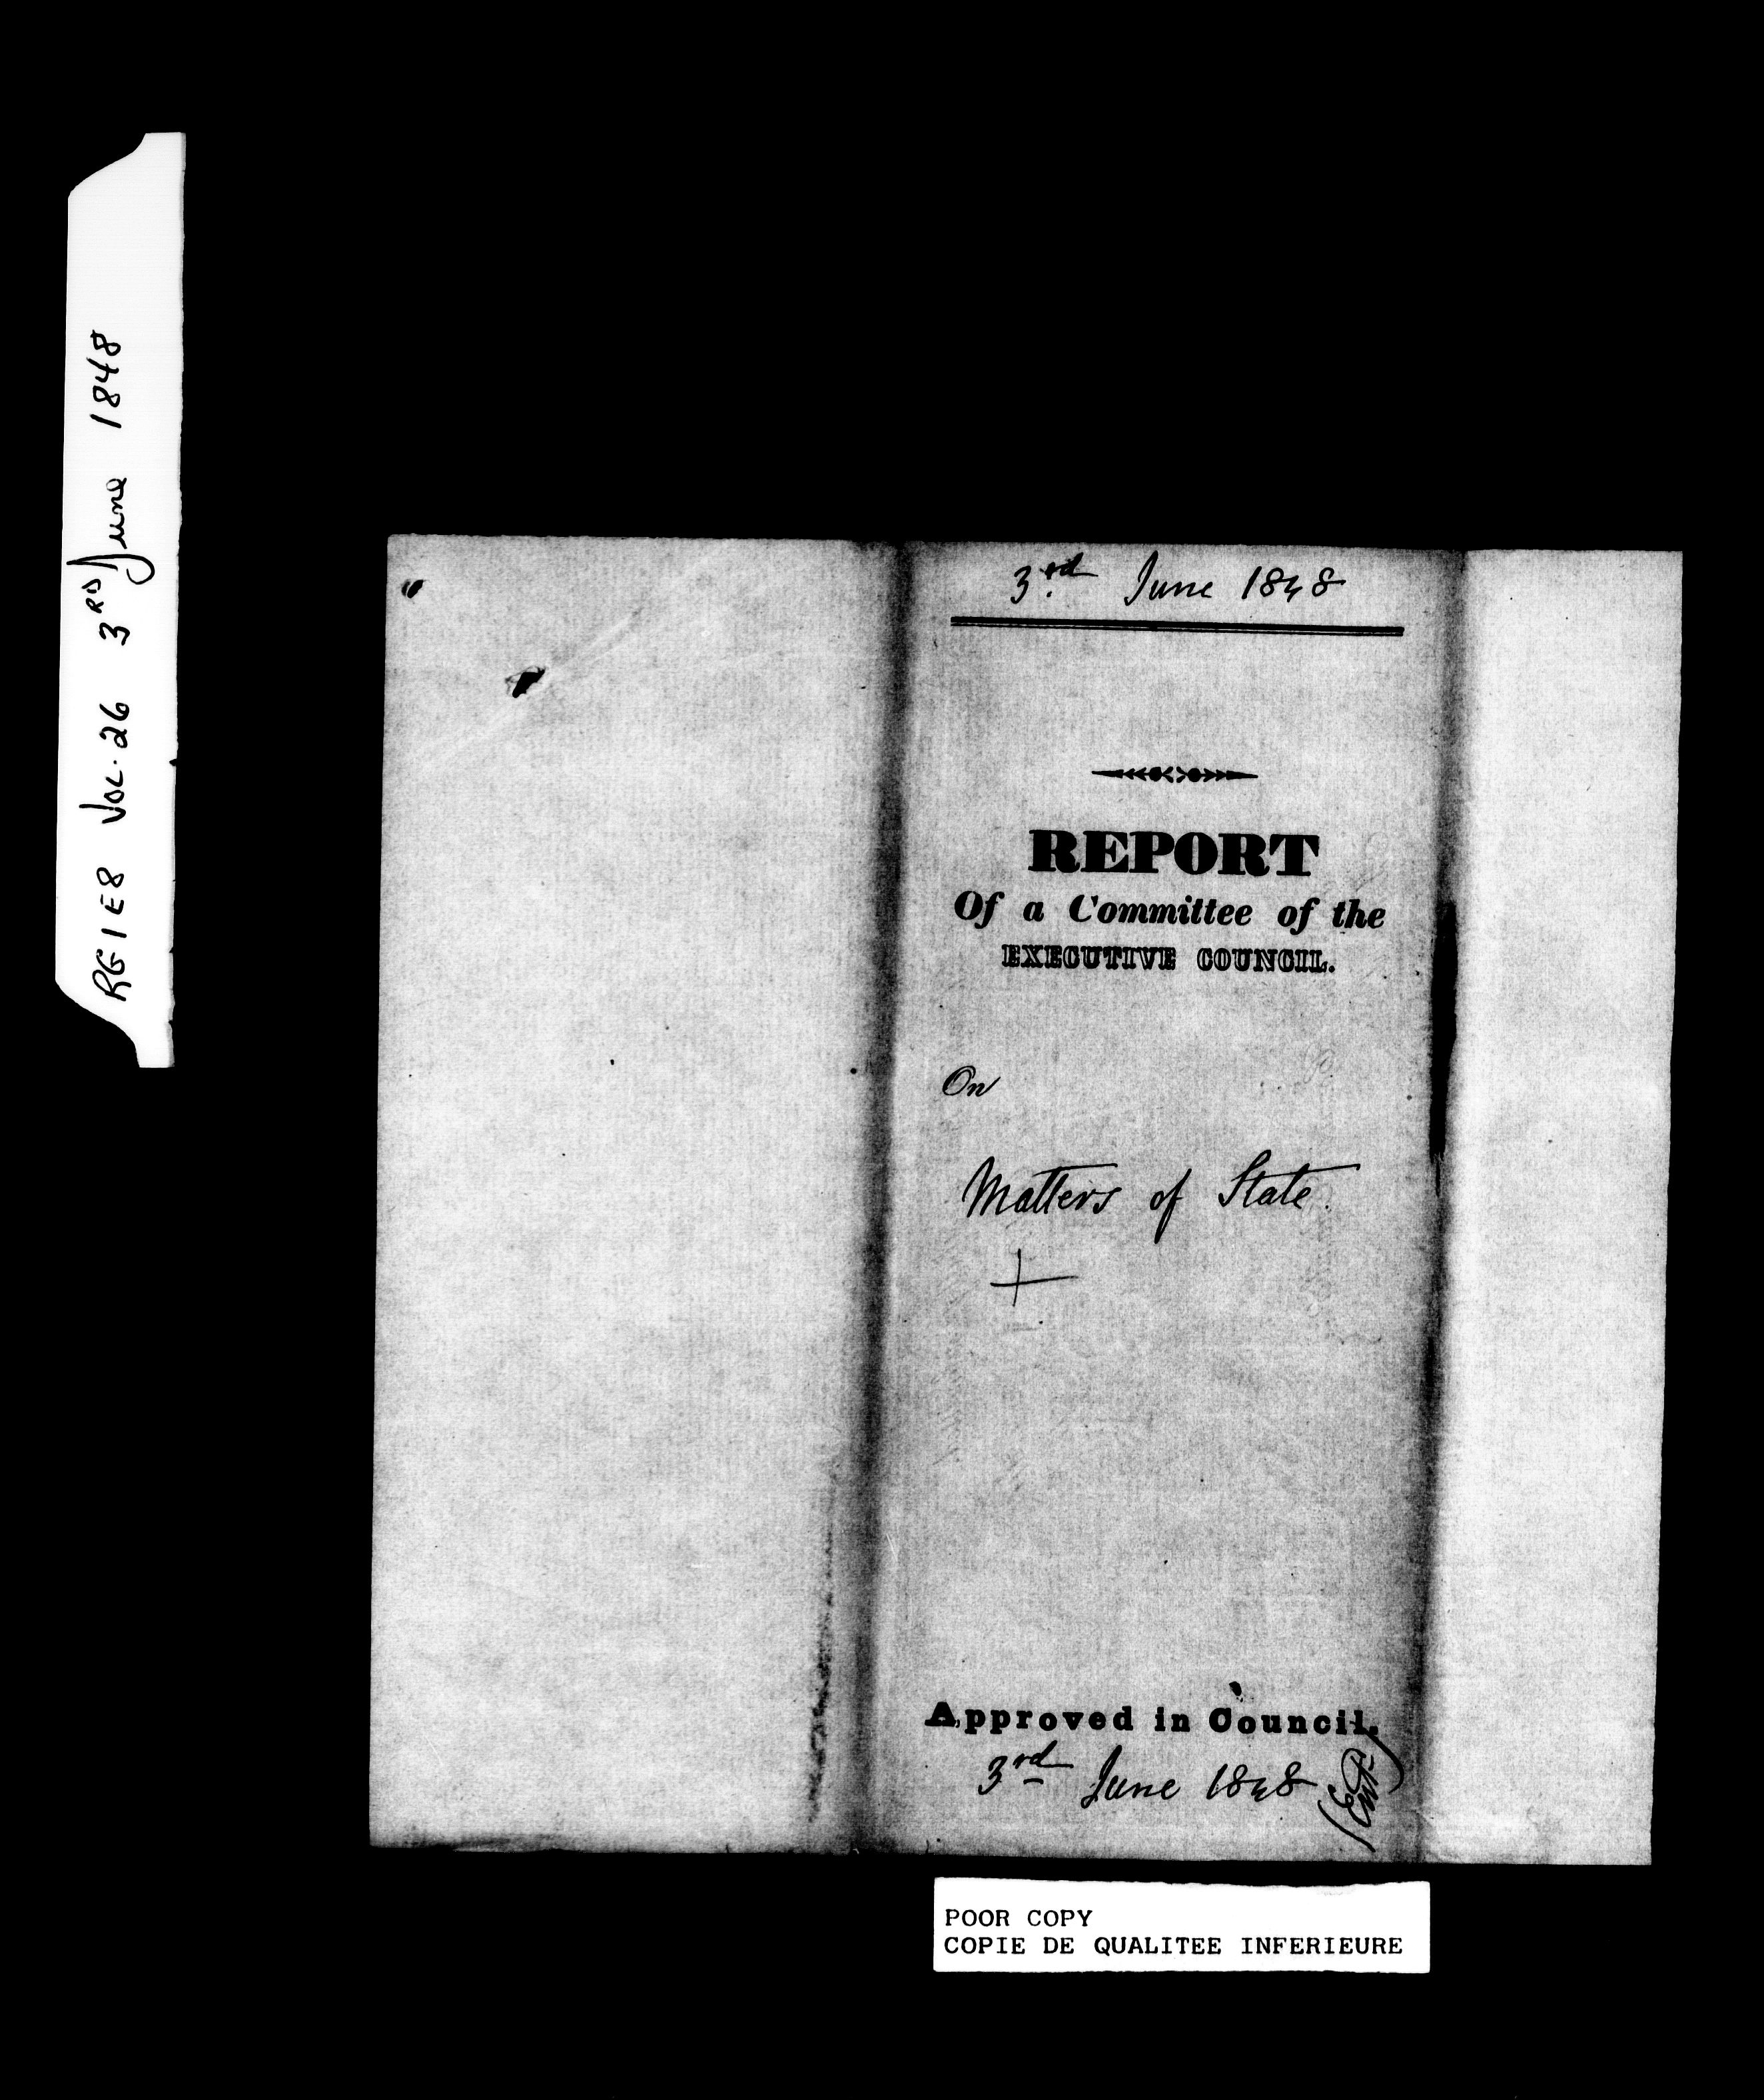 RG 1 E8 VOL. 26 3RD June 1848
3rd June 1848
REPORT
Of a Committee of the
EXECUTIVE COUNCIL.
On
Matters of State.
Approved in Council.
3rd June 1848
POOR COPY
COPIE DE QUALITEE INFERIEURE